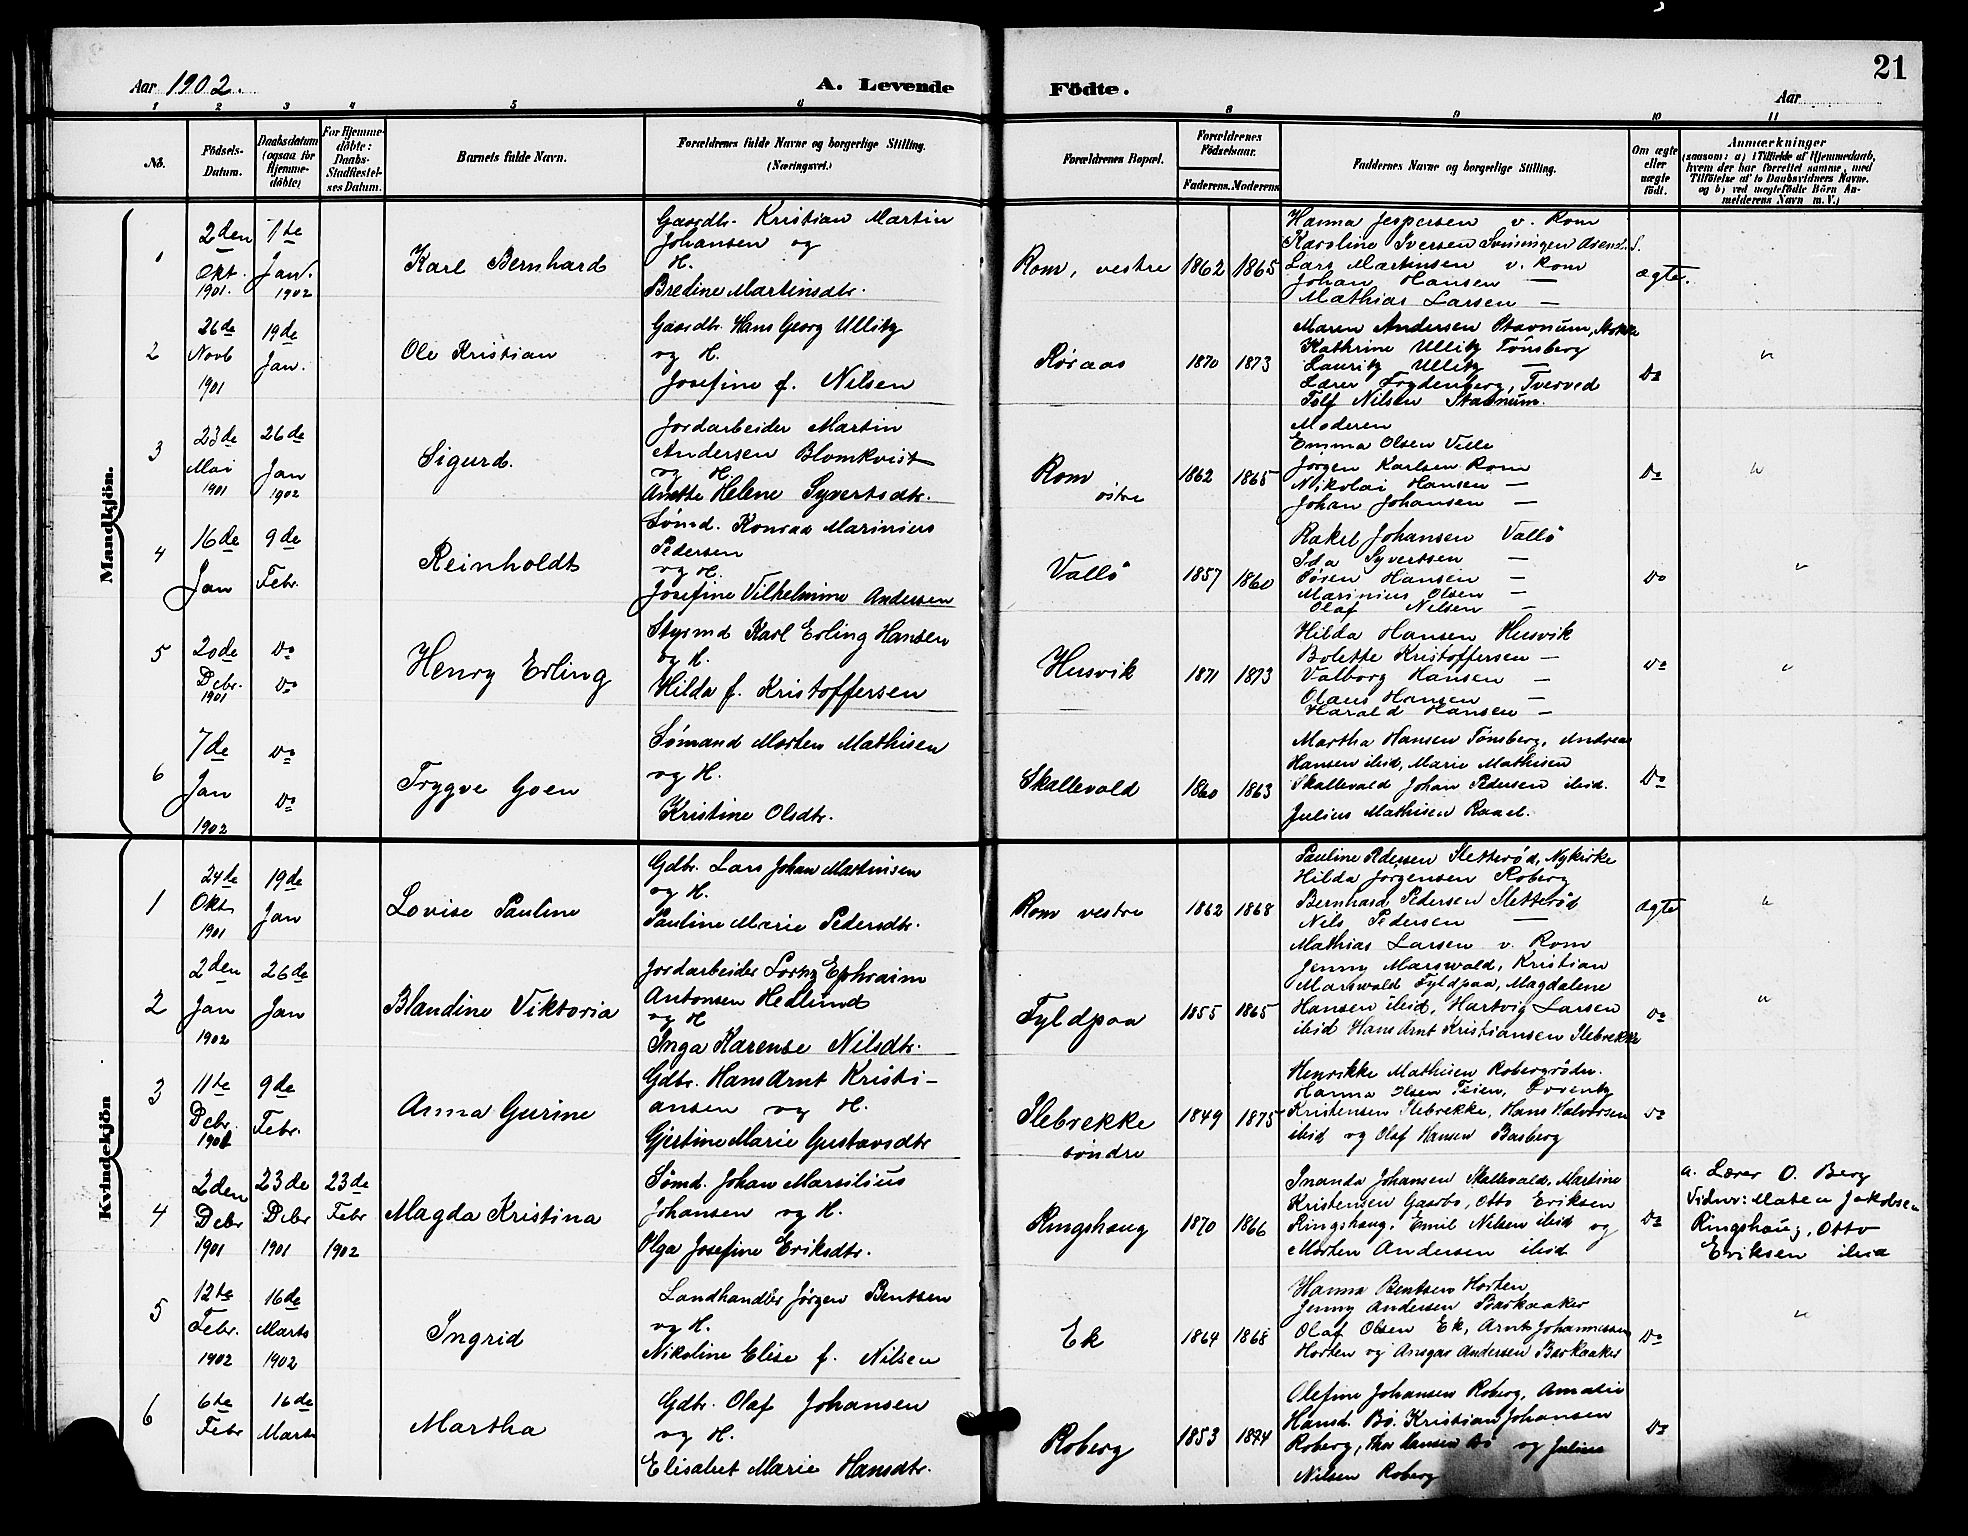 21
Aar 1902.
A. Levende Födte.
Aar
1 2 3 4 5 6 8 9 10 11
No.
Födsels-Datum.
Daabsdatum (ogsaa for Hjemme-döbte)
For Hjemme-döbte: Daabs-Stadfæstel-ses Datum.
Barnets fulde Navn.
Forældrenes fulde Navne og borgerlige Stilling. (Næringsvei.)
Forældrenes Bopæl.
Forældrenes Födselsaar.
Faderens. Moderens
Faddernes Navne og borgerlige Stilling.
Om ægte eller uægte födt.
Anmærkninger
(saasom: a) i Tilfælde af Hjemmedaab, hvem der har forrettet samme, med Tilföielse af to Daabsvidners Navne. og b) ved uægtefödte Börn An-melderens Navn m. V.)
Mandkjön.
1
2den Okt. 1901.
1te Jan. 1902
Karl Bernhard
Gaardbr. Kristian Martin
Johansen og
H.
Bredine Martinsdtr.
Rom, vestre
1862 1865
Hanna Jespersen v. Rom
Karoline Iversen
Lars Martinsen v. Rom
Johan Hansen —
Mathias Larsen —
ægte.
2
26de Novb 1901
19de Jan.
Ole Kristian
Gaardbr. Hans Georg Ullitz
og H.
Josefine f. Nilsen
Röraas
1870 1873
Maren Andersen Stavnum, Stokke
Kathrine Ullitz Tönsberg
Lauritz Ullitz —
Lærer Frydenberg, Tverved
Tolf Nilsen Stavnum.
Do
"
3
23de Mai 1901
26de Jan 1902
Sigurd.
Jordarbeider Martin
Andersen Blomkvist
og H
Anette Helene Syvertsdtr.
Rom östre
1862 1865
Moderen
Emma Olsen Velle
Jörgen Karlsen Rom
Nikolai Hansen —
Johan Johansen —
Do
"
4
16de Jan
9de Febr.
Reinholdt
Sömd. Konrad Marinius
Pedersen
og H.
Josefine Vilhelmine Andersen
Vallö
1857 1860
Rakel Johansen Vallö
Ida Syvertsen —
Sören Hansen —
Marinius Olsen —
Olaf Nilsen —
Do
"
5
20de Debr. 1901
Do Do
Henry Erling
Styrmd Karl Erling Hansen
og H.
Hilda f. Kristoffersen
Husvik
1871 1873
Hilda Hansen Husvik
Bolette Kristoffersen —
Valborg Hansen —
Olaus Hansen —
Harald Hansen —
Do
"
6
7de Jan 1902
Do Do
Trygve Goen
Sömand Morten Mathisen
og H.
Kristine Olsdtr.
Skallevold
1860 1863
Martha Hansen Tönsberg, Andreas
Hansen ibid, Marie Mathisen
Skallevald Johan Pedersen ibid.
Julius Mathisen Raael.
Do
Kvindekjön
1
24de Okt 1901
19de Jan
Lovise Pauline
Gdbr. Lars Johan Martinsen
og H.
Pauline Marie Pedersdtr.
Rom vestre
1862 1868
Pauline Pedersen Sletteröd, Nykirke
Hilda Jörgensen Roberg
Bernhard Pedersen Sletteröd
Nils Pedersen —
Mathias Larsen v. Rom
ægte
"
2
2den Jan 1902
26de Jan
Blandine Viktoria
Jordarbeider Lorntz Ephraim
Antonsen Hedlund
og H
Inga Karense Nilsdtr.
Fyldpaa
1855 1865
Jenny Marswald, Kristian
Marswald Fyldpaa, Magdalene
Hansen ibid, Hartvig Larsen
ibid Hans Arnt Kristiansen Ilebrekke
Do
"
3
11te Debr. 1901
9de Febr.
Anna Gurine
Gdbr. Hans Arnt Kristi-
ansen og H.
Gjertine Marie Gustavsdtr
Ilebrekke söndre
1849 1875
Henrikke Mathisen Robergröden.
Hanna Olsen Teien, Lorentz
Kristensen Ilebrekke, Hans Halvorsen
ibid og Olaf Hansen Basberg
Do
4
2den Debr 1901
23de Debr 1901
23de Febr 1902
Magda Kristina
Sömd. Johan Marsilius
Johansen og H.
Olga Josefine Eriksdtr.
Ringshaug
1870 1866
Inanda Johansen Skallevald, Martine
Kristensen Gaarbo, Otto Eriksen
Ringshaug, Emil Nilsen ibid og
Morten Andersen ibid
Do
a. Lærer O. Berg
Vidner: Matea Jakobsen
Ringshaug, Otto
Eriksen ibid
5
12te Febr. 1902
16de Marts 1902
Ingrid
Landhandler Jörgen Bentsen
og H.
Nikoline Elise f. Nilsen
Ek
1864 1868
Hanna Bentsen Horten
Jenny Andersen Barkaaker
Olaf Olsen Ek, Arnt Johannessen
Horten og Ansgar Andersen Barkaaker
Do
"
6
6te Febr
16de Marts
Martha
Gdbr. Olaf Johansen
og H.
Elisabet Marie Hansdtr.
Roberg
1853 1874
Olefine Johansen Roberg, Amalie
Hansd. Bö. Kristian Johansen
Roberg, Thor Hansen Bö og Julius
Nilsen Roberg
Do